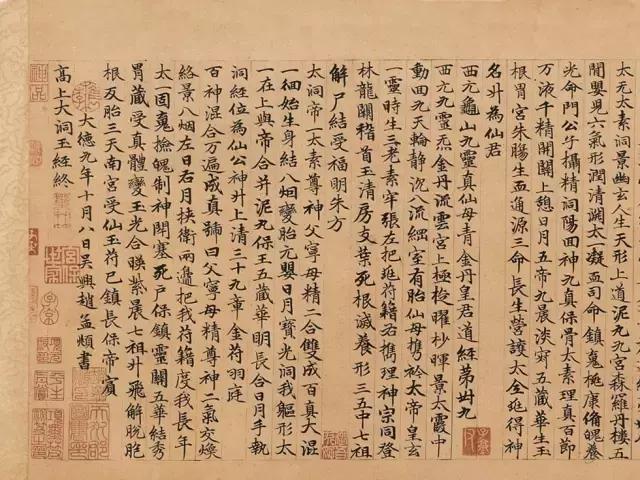 太无太素洞景道上泥丸九宮森羅丹樓五
閒嬰兒六氣形潤清淵太一凝血司命鎮嵬康脩魄養
光命門公子攝精洞陽回神九真保骨太素理真百節
万液千精開關上憩日月五帝九晨淡寂五藏華生玉
根胃宮朱腸生血通源三命長生營護太全得神
名升為仙君
西元龜山九靈真仙母青金丹皇君道經苐卅九
西元九靈炁金丹流雲宮上極曜杪暉景太霞中
動回九天輪静沉八流細室有胎仙母携衿太帝皇玄
一靈時生三老素牢張左把符籍右携理神宗同登
林龍關稽首玉清房支葉死根滅養形三五中七祖
解尸結受福明朱方
太洞帝一太素尊神父寧母精二合雙成百真大混
一徊始生身結八烟變胎元嬰日月寳光洞我軀形太
一在上與帝合并泥丸保玉五藏華明長合日月手執
洞經位為仙公神升上清三十九章金符羽庭
百神混合万遍成真號曰父寧母精尊神二氣交煥
絡景八烟左日右月挟衛兩邊把我符籍度我長年
太一固嵬檢魄制神閉塞死戶保鎮靈關五華結秀
胃藏受真體變玉光合暎紫晨七祖升飛解脫胞
根及胎三天南宮受仙玉符已鎮長保帝賓
大德九年十月八日吳興趙孟頫書
高上大洞玉經終